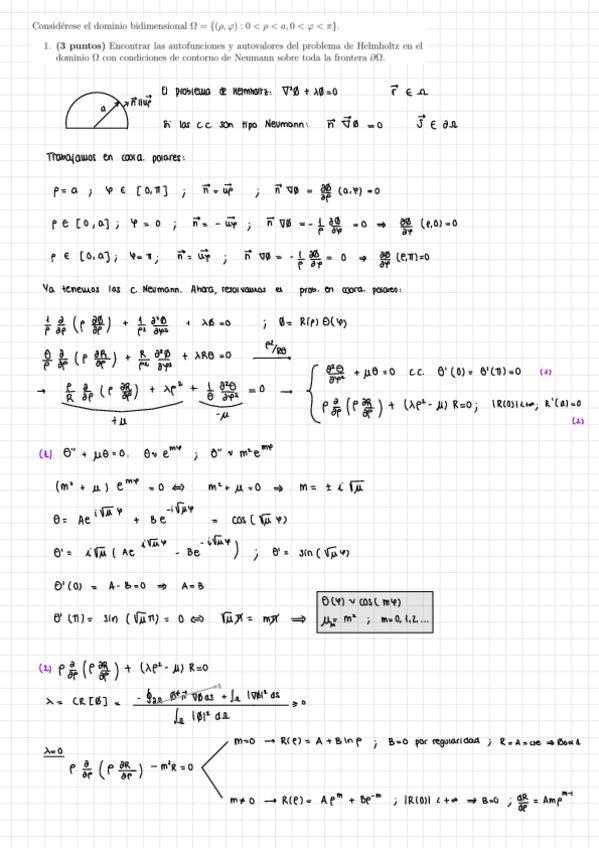 Considérese el dominio bidimensional Ω = {(ρ, φ) : 0 < ρ < a, 0 < φ < π}.
1. (3 puntos) Encontrar las autofunciones y autovalores del problema de Helmholtz en el
dominio Ω con condiciones de contorno de Neumann sobre toda la frontera ∂Ω.
El problema de Helmholtz: ∇²Ø + λØ = 0 r⃗ ∈ Ω
a n⃗ ∥ u⃗φ
Si las c.c. son tipo Neumann: n⃗ ∇⃗Ø = 0 S⃗ ∈ ∂Ω
Trabajamos en coord. polares:
ρ = a ; φ ∈ [0, π] ; n⃗ = u⃗ρ ; n⃗ ∇Ø = ∂Ø/∂ρ (a, φ) = 0
ρ ∈ [0, a] ; φ = 0 ; n⃗ = - u⃗φ ; n⃗ ∇Ø = - 1/ρ ∂Ø/∂φ = 0 ⇒ ∂Ø/∂φ (ρ, 0) = 0
ρ ∈ [0, a] ; φ = π ; n⃗ = u⃗φ ; n⃗ ∇Ø = - 1/ρ ∂Ø/∂φ = 0 ⇒ ∂Ø/∂φ (ρ, π) = 0
Ya tenemos las c. Neumann. Ahora, resolvamos el prob. en coord. polares:
1/ρ ∂/∂ρ (ρ ∂Ø/∂ρ) + 1/ρ² ∂²Ø/∂φ² + λØ = 0 ; Ø = R(ρ) Θ(φ)
Θ/ρ ∂/∂ρ (ρ ∂R/∂ρ) + R/ρ² ∂²Θ/∂φ² + λRΘ = 0 ρ²/RΘ
→ ρ/R ∂/∂ρ (ρ ∂R/∂ρ) + λρ² + 1/Θ ∂²Θ/∂φ² = 0 →
+μ -μ
∂²Θ/∂φ² + μΘ = 0 c.c. Θ'(0) = Θ'(π) = 0 (1)
ρ ∂/∂ρ (ρ ∂R/∂ρ) + (λρ² - μ) R = 0 ; |R(0)| < +∞, R'(a) = 0
(2)
(1) Θ'' + μΘ = 0. Θ ∼ e^{mφ} ; Θ'' ∼ m² e^{mφ}
(m² + μ) e^{mφ} = 0 ⇔ m² + μ = 0 ⇒ m = ± i √μ
Θ = A e^{i√μ φ} + B e^{-i√μ φ} = cos(√μ φ)
Θ' = i√μ (A e^{i√μ φ} - B e^{-i√μ φ}) ; Θ' = sin(√μ φ)
Θ'(0) = A - B = 0 ⇒ A = B
Θ'(π) = sin(√μ π) = 0 ⇔ √μ π = m π ⇒
Θ(φ) ∼ cos(mφ)
μₘ = m² ; m = 0, 1, 2, ...
(2) ρ ∂/∂ρ (ρ ∂R/∂ρ) + (λρ² - μ) R = 0
λ = CR[Ø] = (- ∮∂Ω Ø* n⃗ ∇Ø ds + ∫Ω |∇Ø|² ds) / (∫Ω |Ø|² dΩ) ≥ 0
λ=0
ρ ∂/∂ρ (ρ ∂R/∂ρ) - m²R = 0
m=0 → R(ρ) = A + B ln ρ ; B=0 por regularidad ; R = A = cte
m≠0 → R(ρ) = Aρ^m + Bρ^{-m} ; |R(0)| < +∞ ⇒ B=0 ; dR/dρ = Amρ^{m-1}